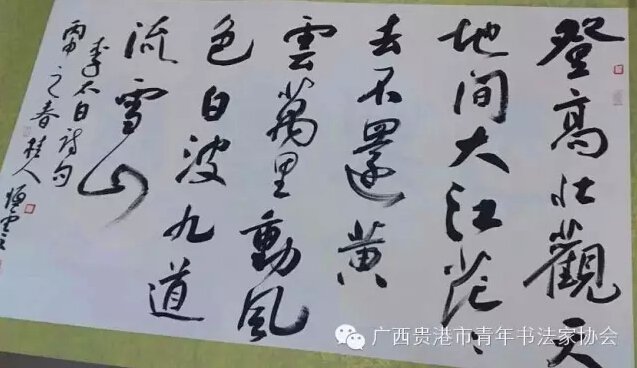 登高壮觀天
地間大江茫々
去不還黄
雲萬里動風
色白波九道
流雪山
李太白诗句
丙申之春桂人
广西贵港市青年书法家协会